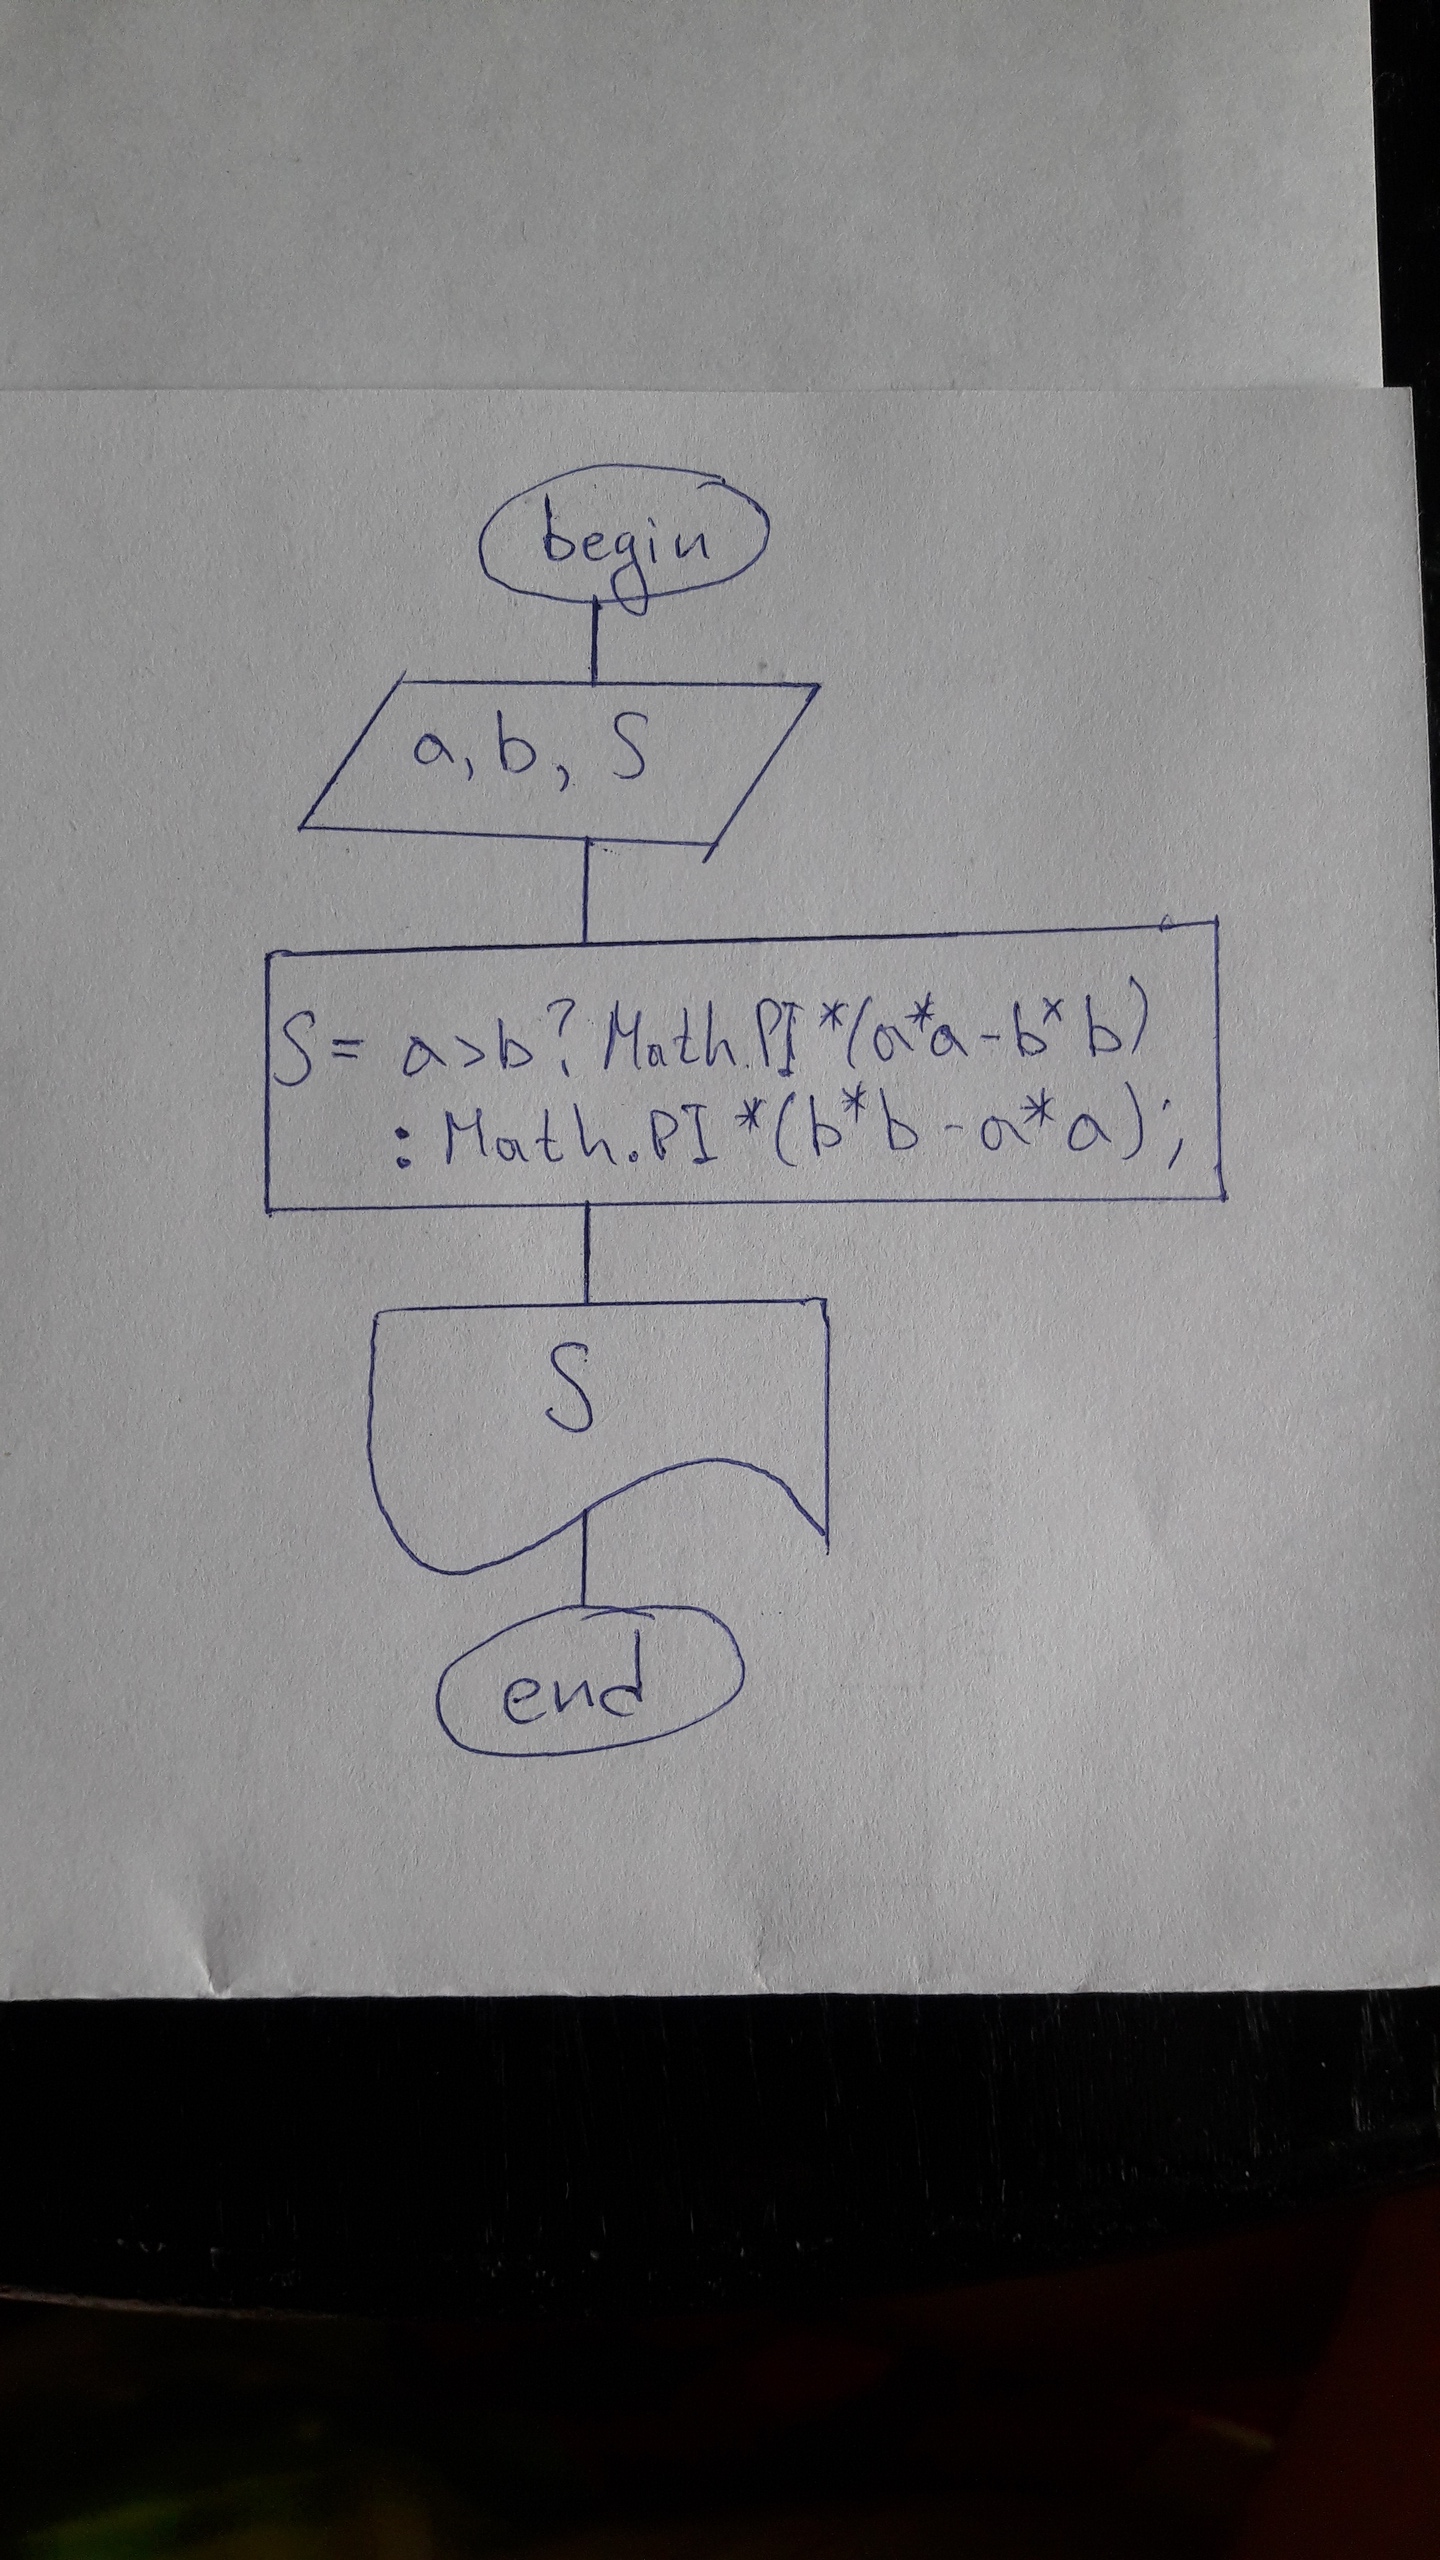 begin
a, b, S
S = a>b? Math.PI*(a*a-b*b)
: Math.PI*(b*b-a*a);
S
end